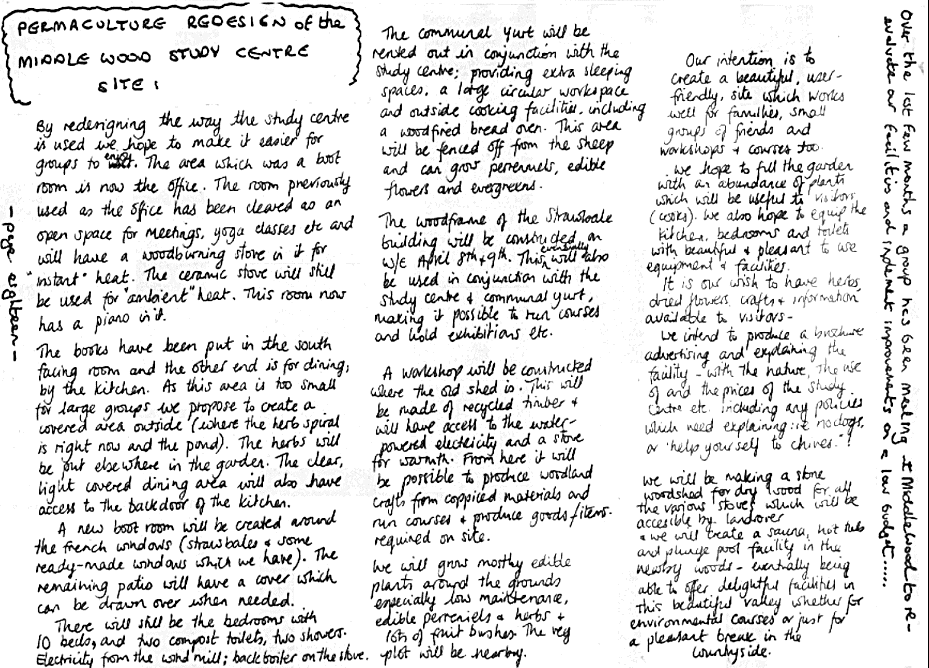 PERMACULTURE REDESIGN of the
MIDDLE WOOD STUDY CENTRE
SITE:
By redesigning the way the study centre
is used we hope to make it easier for
groups to enjoy it. The area which was a boot
room is now the office. The room previously
used as the office has been cleared as an
open space for meetings, yoga classes etc and
will have a woodburning stove in it for
"instant" heat. The ceramic stove will still
be used for "ambient" heat. This room now
has a piano in it.
The books have been put in the south
facing room and the other end is for dining,
by the kitchen. As this area is too small
for large groups we propose to create a
covered area outside (where the herb spiral
is right now and the pond). The herbs will
be put elsewhere in the garden. The clear,
light covered dining area will also have
access to the backdoor of the kitchen.
A new boot room will be created around
the french windows (strawbales & some
ready-made windows which we have). The
remaining patio will have a cover which
can be drawn over when needed.
There will still be the bedrooms with
10 beds, and two compost toilets, two showers.
Electricity from the wind mill; back boiler on the stove.
The communal yurt will be
rented out in conjunction with the
study centre; providing extra sleeping
spaces, a large circular workspace
and outside cooking facilities, including
a woodfired bread oven. This area
will be fenced off from the sheep
and can grow perennels, edible
flowers and evergreens.
The woodframe of the Strawbale
building will be constructed on
W/E April 8th & 9th. This eventually will also
be used in conjunction with the
study centre & communal yurt,
making it possible to run courses
and hold exhibitions etc.
A workshop will be constructed
where the old shed is. This will
be made of recycled timber &
will have access to the water-
powered electricity and a stove
for warmth. From here it will
be possible to produce woodland
crafts from coppiced materials and
run courses & produce goods/items
required on site.
We will grow mostly edible
plants around the grounds
especially low maintenance,
edible perreniels & herbs &
lots of fruit bushes. The veg
plot will be nearby.
Our intention is to
create a beautiful, user-
friendly, site which works
well for families, small
groups of friends and
workshops & courses too.
We hope to fill the garden
with an abundance of plants
which will be useful to visitors
(cooks). We also hope to equip the
kitchen, bedrooms and toilets
with beautiful & pleasant to use
equipment & facilities.
It is our wish to have herbs,
dried flowers, crafts & information
available to visitors-
We intend to produce a brochure
advertising and explaining the
facility - with the nature, the use
of and the prices of the Study
Centre etc. including any policies
which need explaining ie no dogs,
or 'help yourself to chives."!
We will be making a stone
woodshed for dry wood for all
the various stoves which will be
accesible by landrover
& we will create a sauna, hot tub
and plunge pool facility in the
newby woods - eventually being
able to offer delightful facilities in
this beautiful valley whether for
environmental courses or just for
a pleasant break in the
countryside.
Over the last few months a group has been meeting at Middle Wood to re-
evaluate our facilities and implement improvements on a low budget.....
- page eighteen -